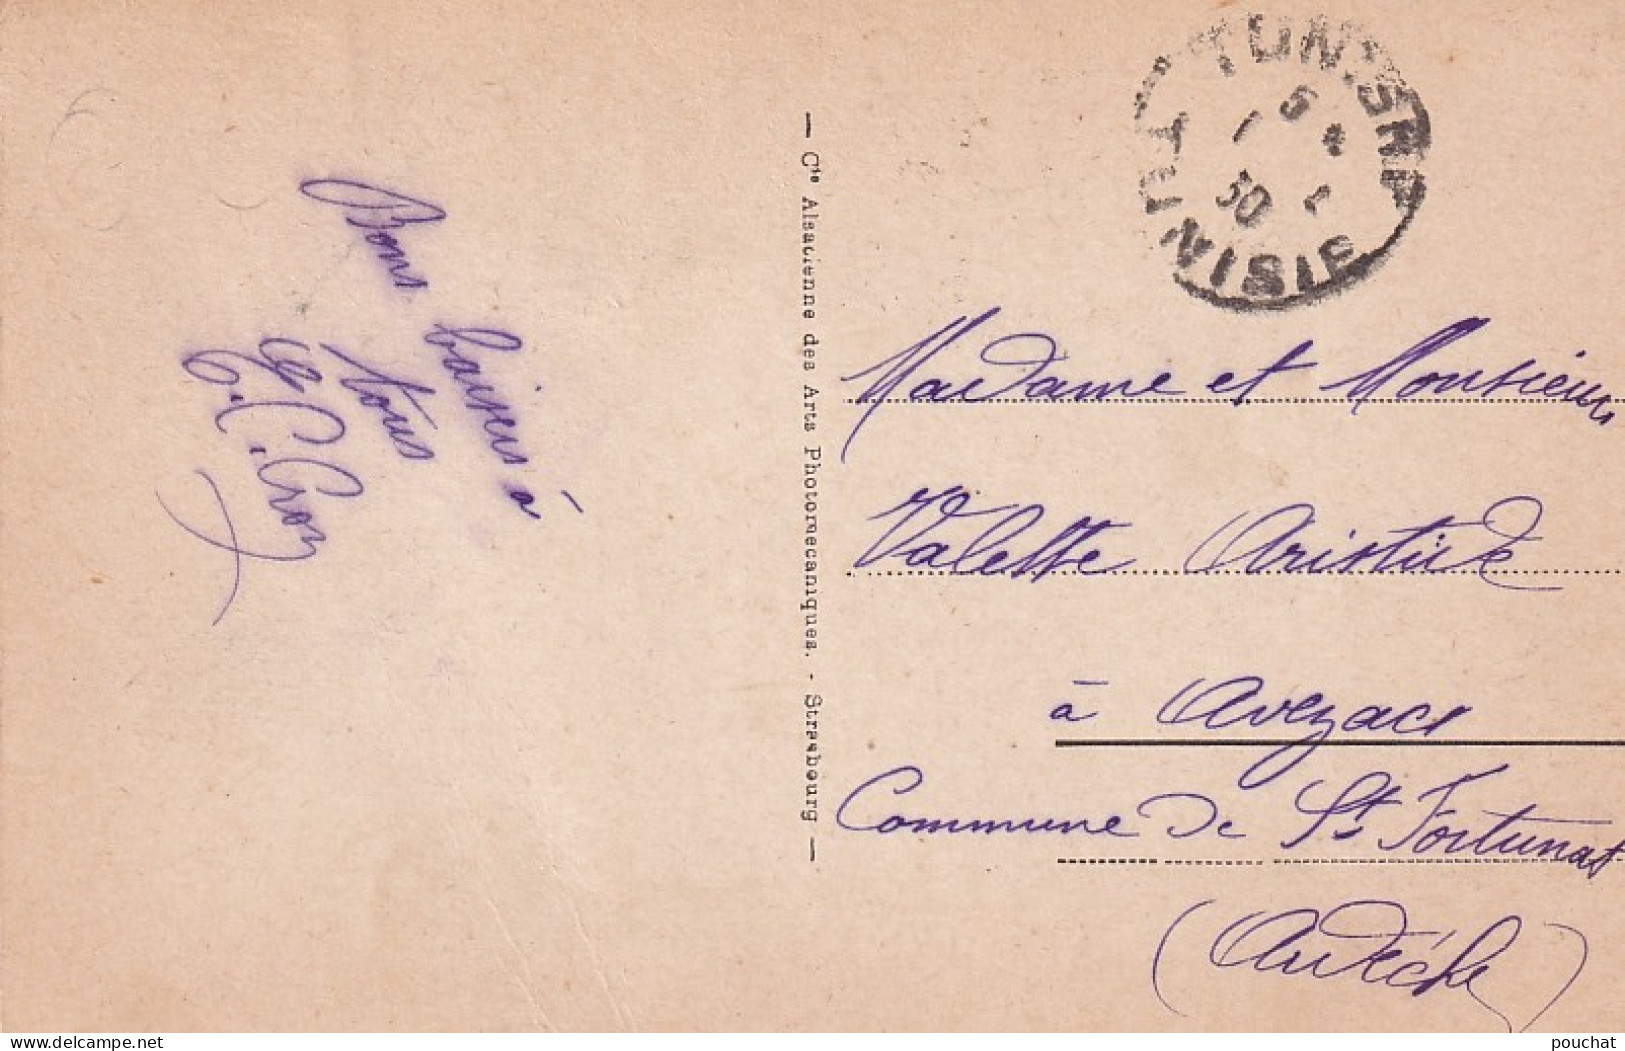 Bons
baisers à
tous
Cie Alsacienne des Arts Photomécaniques. - Strasbourg
TUNIS R.P
5
1
30
TUNISIE
Madame et Monsieur
Valette Aristide
à Avezac
Commune de St Fortunat
(Ardèche)
delcampe.net
pouchat